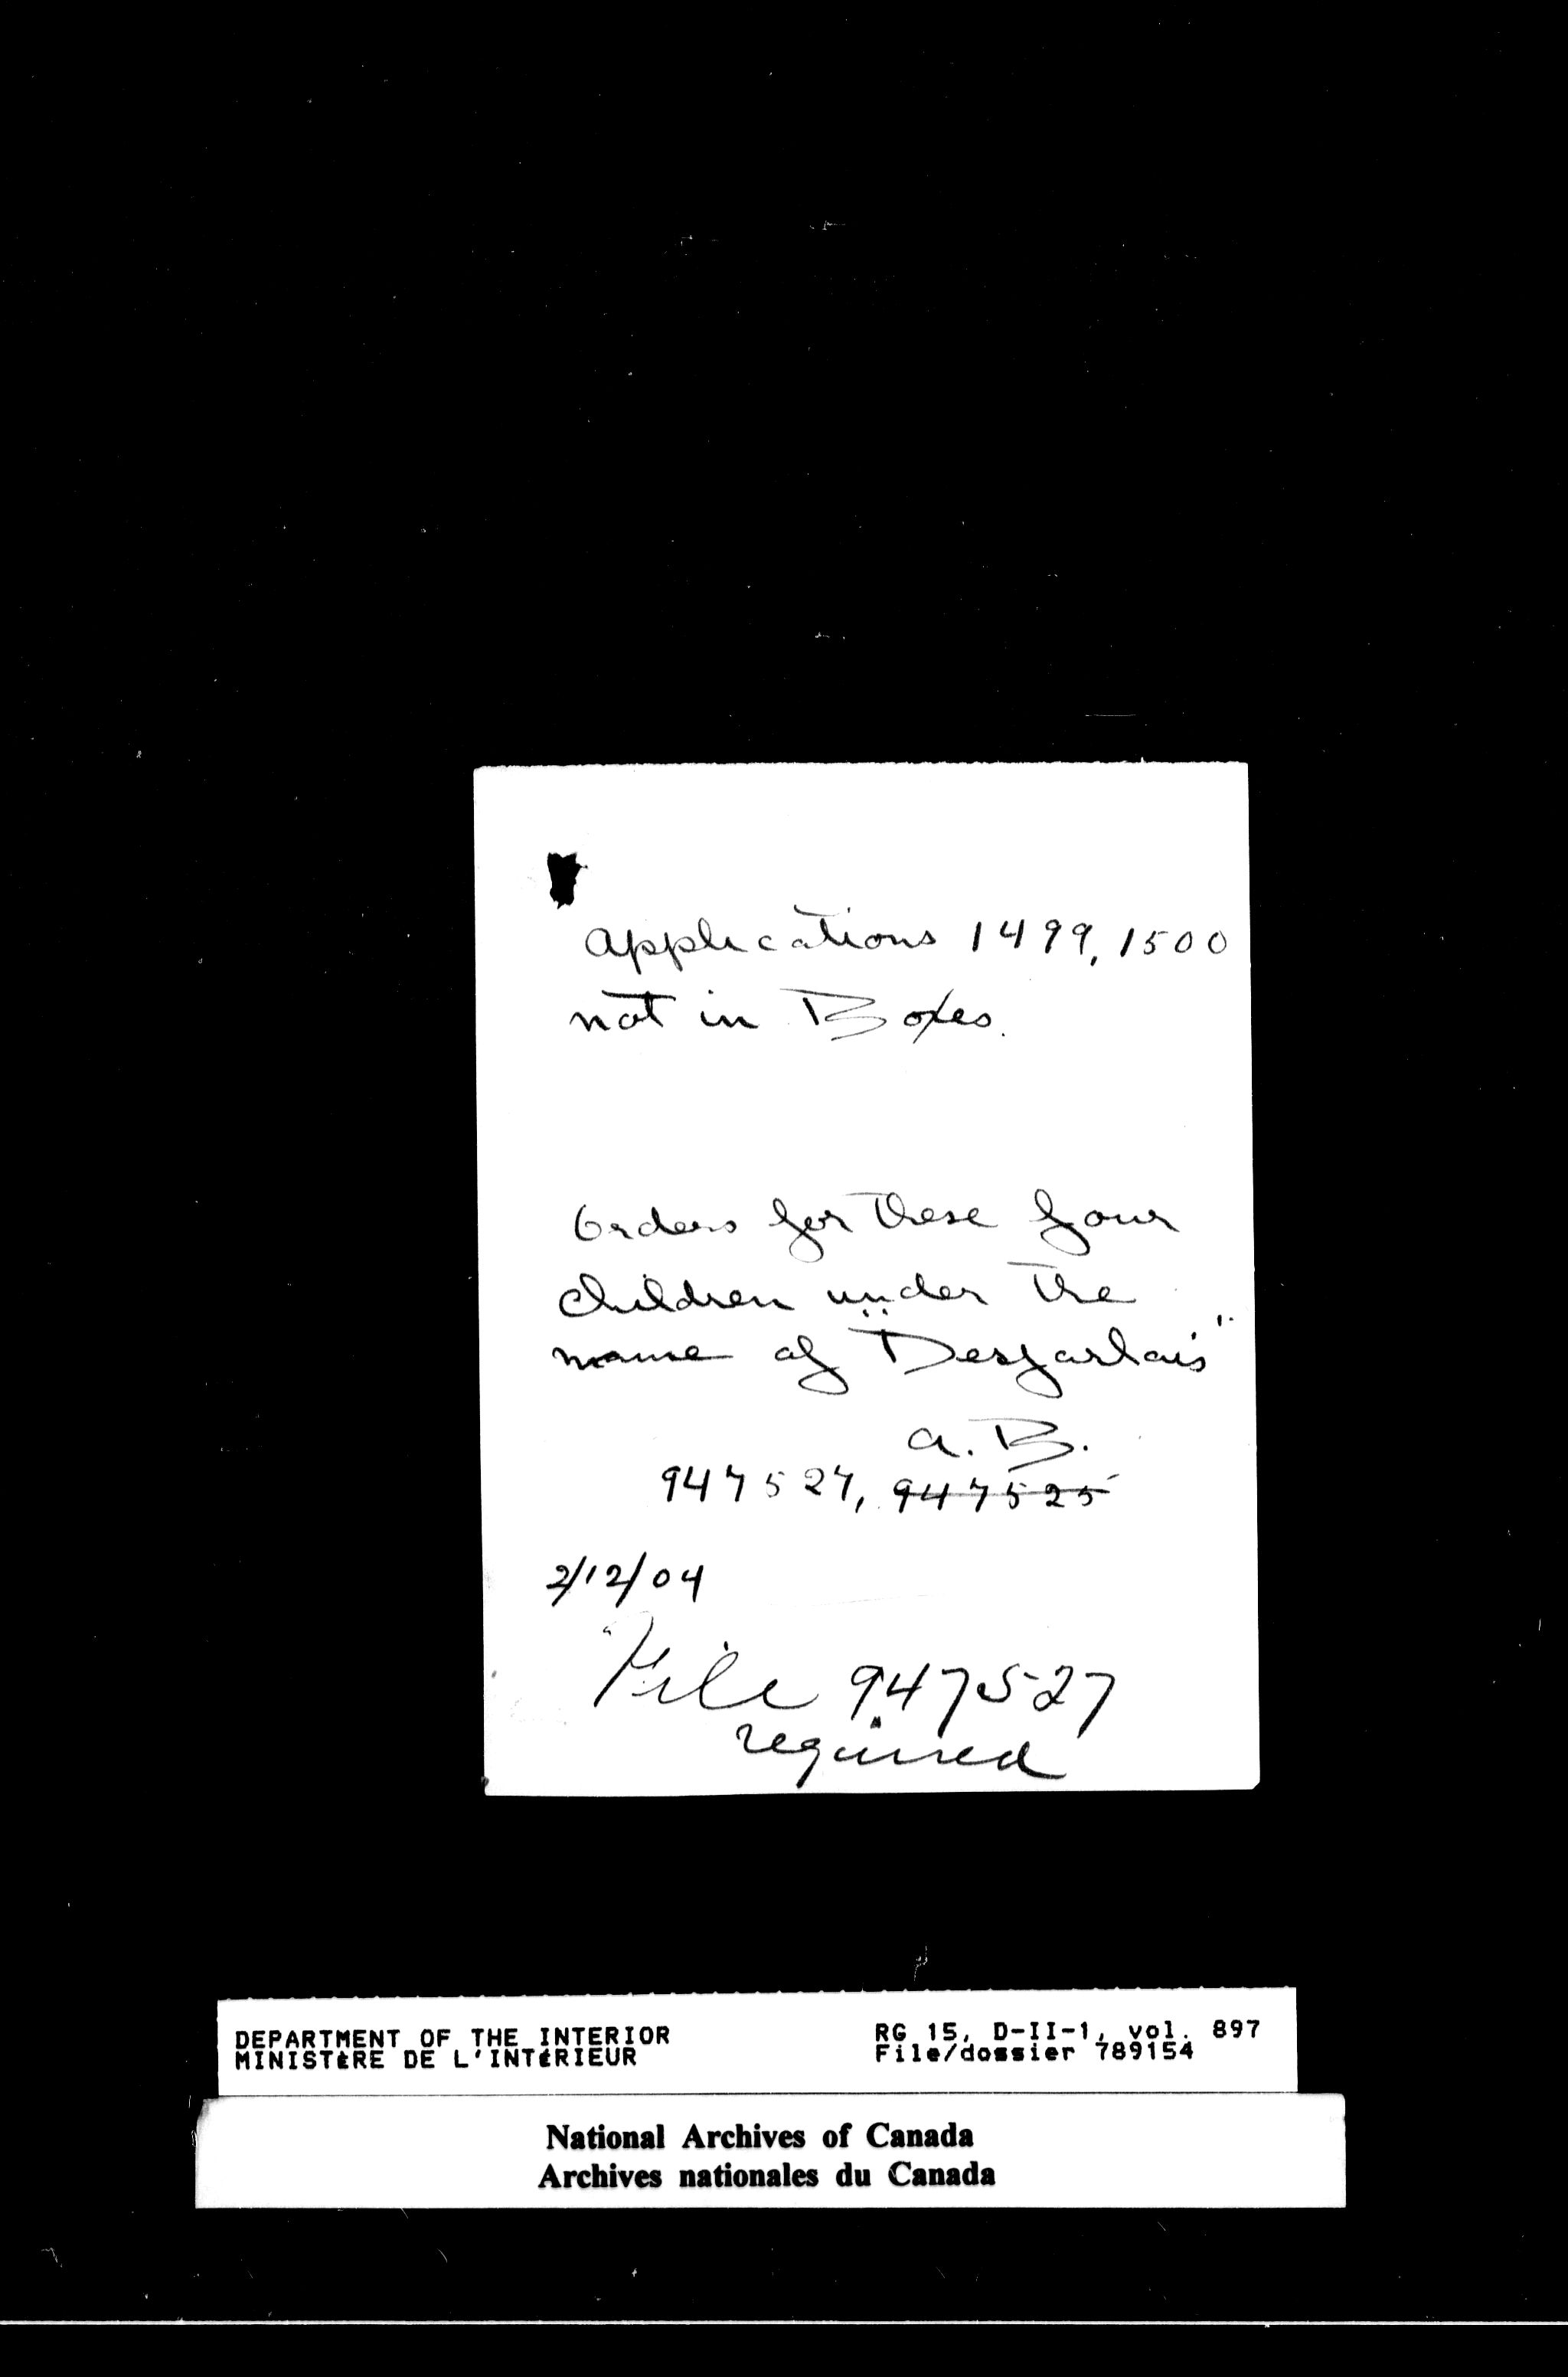 Applications 1499, 1500
not in Boxes.
Orders for these four
children under the
name of "Desjarlais"
A.B.
947527, 947525
2/12/04
File 947527
required
DEPARTMENT OF THE INTERIOR
MINISTÈRE DE L'INTÉRIEUR
RG 15, D-II-1, vol. 897
File/dossier 789154
National Archives of Canada
Archives nationales du Canada